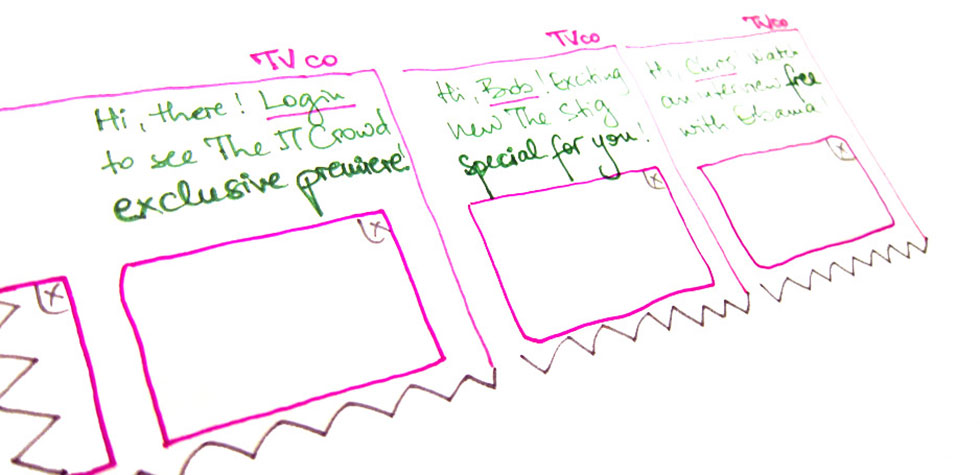 TVco
Hi, there! Login
to see The IT Crowd
exclusive premiere!
x
x
TVco
Hi, Bob! Exciting
new The Stig
special for you!
x
TVco
Hi, Chris! Watch
an interview free
with Obama!
x